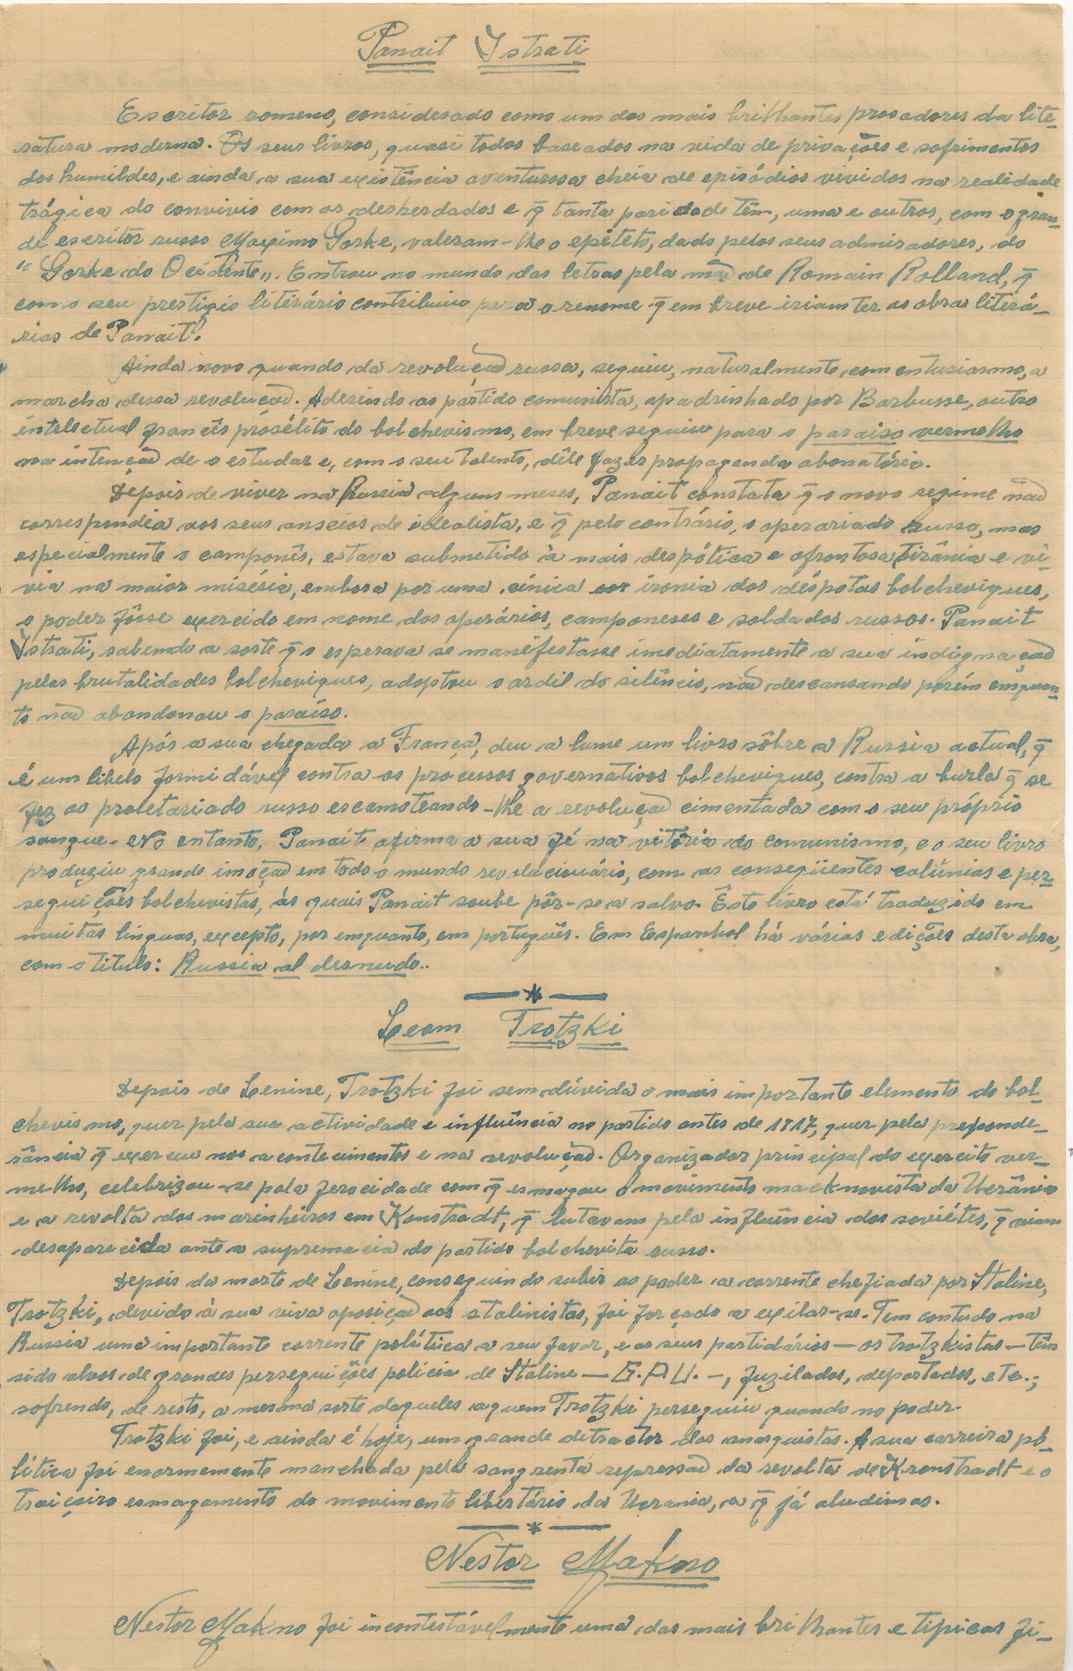 Panait Istrati
Escritor romeno, considerado como um dos mais brilhantes prosadores da lite-
ratura moderna. Os seus livros, quasi todos baseados na vida de privações e sofrimentos
dos humildes, e ainda a sua existência aventurosa cheia de episódios vividos na realidade
trágica do convivio com os desherdados e q̃ tanta paridade têm, uma e outros, com o gran-
de escritor russo Maximo Gorke, valeram-lhe o epíteto, dado pelos seus admiradores, do
"Gorke do Ocidente". Entrou no mundo das letras pela mão de Romain Rolland, q̃
com o seu prestígio literário contribuiu para o renome q̃ em breve iriam ter as obras literá-
rias de Panait.
Ainda novo quando da revolução russa, seguiu, naturalmente, com entusiasmo, a
marcha dessa revolução. Aderindo ao partido comunista, apadrinhado por Barbusse, outro
intelectual francês prosélito do bolchevismo, em breve seguiu para o paraiso vermelho
na intenção de o estudar e, com o seu talento, dêle fazer propaganda abonatória.
Depois de viver na Russia alguns meses, Panait constata q̃ o novo regime não
correspondia aos seus anseios de idealista, e q̃ pelo contrário, o operariado russo, mas
especialmente o camponês, estava submetido à mais despótica e afrontosa tirânia e vi-
via na maior miseria, embora por uma cínica ironia dos déspotas bolcheviques,
o poder fôsse exercido em nome dos operários, camponeses e soldados russos. Panait
Istrati, sabendo a sorte q̃ o esperava se manifestasse imediatamente a sua indignação
pelas brutalidades bolcheviques, adoptou o ardil do silêncio, não descansando porém emquan-
to não abandonou o paraíso.
Após a sua chegada a França, deu a lume um livro sôbre a Russia actual, q̃
é um libelo formidável contra os processos governativos bolcheviques, contra a burla q̃ se
fez ao proletariado russo escamoteando-lhe a revolução cimentada com o seu próprio
sangue. No entanto, Panait afirma a sua fé na vitória do comunismo, e o seu livro
produziu grande imoção em todo o mundo revolucionário, com as conseqüentes calúnias e per-
seguições bolchevistas, ás quais Panait soube pôr-se a salvo. Êste livro está traduzido em
muitas línguas, excepto, por emquanto, em português. Em Espanhol há várias edições desta obra,
com o titulo: Russia al desnudo..
Leam Trotzki
Depois de Lenine, Trotzki foi sem dúvida o mais importante elemento do bol-
chevismo, quer pela sua actividade e influência no partido antes de 1917, quer pela preponde-
rância q̃ exerceu nos acontecimentos e na revolução. Organizador principal do exercito ver-
melho, celebrizou-se pela ferocidade com q̃ esmagou o movimento macknovista da Ucrânia
e a revolta dos marinheiros em Konstradt, q̃ lutavam pela influência dos soviétes, q̃ viam
desaparecida ante a supremacia do partido bolchevita russo.
Depois da morte de Lenine, conseguindo subir ao poder a corrente chefiada por Staline,
Trotzki, devido à sua viva oposição aos stalinistas, foi forçado a exilar-se. Tem contudo na
Russia uma importante corrente política a seu favor, e os seus partidários — os trotzkistas — têm
sido alvos de grandes perseguições policia de Staline — G.P.U. —, fuzilados, deportados, etc.;
sofrendo, de resto, a mesma sorte daqueles a quem Trotzki perseguiu quando no poder.
Trotzki foi, e ainda é hoje, um grande detractor dos anarquistas. A sua carreira po-
lítica foi enormemente manchada pela sangrenta repressão da revolta de Kronstradt e o
traiçoiro esmagamento do movimento libertário da Ucrania, a q̃ já aludimos.
Nestor Makno
Nestor Makno foi incontestávelmente uma das mais brilhantes e tipicas fi-